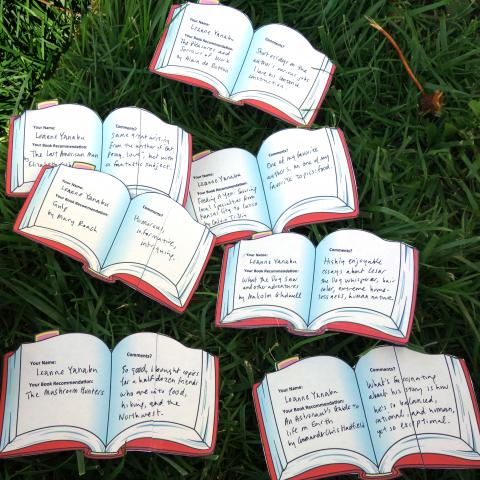 Your Name:
Leanne Yanabu
Your Book Recommendation:
The Pleasures and
Sorrows of Work
by Alain de Botton
Comments?
Short essays on the
author's various jobs
I love his sentence
construction.
Your Name:
Leanne Yanabu
Your Book Recommendation:
The Last American Man
by Elizabeth
Comments?
Same great writing
from the author of "Eat
pray, love", but with
a fantastic subject.
Your Name:
Leanne Yanabu
Your Book Recommendation:
Feeding A Yen: Savoring
local specialties from
Kansas City to Cuzco
Calvin Trillin
Comments?
One of my favorite
authors on one of my
favorite topics: food
Your Name:
Leanne Yanabu
Your Book Recommendation:
Gulp
by Mary Roach
Comments?
Humorous,
informative,
intriguing.
Your Name:
Leanne Yanabu
Your Book Recommendation:
What the Dog Saw
and other adventures
by Malcolm Gladwell
Comments?
Highly enjoyable
essays about Cesar
the Dog whisperer, hair
color, extreme home-
lessness, human nature.
Your Name:
Leanne Yanabu
Your Book Recommendation:
The Mushroom Hunters
Comments?
So good, I bought copies
for a half dozen friends
who are into food,
hiking, and the
Northwest.
Your Name:
Leanne Yanabu
Your Book Recommendation:
An Astronaut's Guide to
life on Earth
by Commander Chris Hadfield
Comments?
What's so fascinating
about his story is how
he's so balanced,
rational, and human,
yet so exceptional.